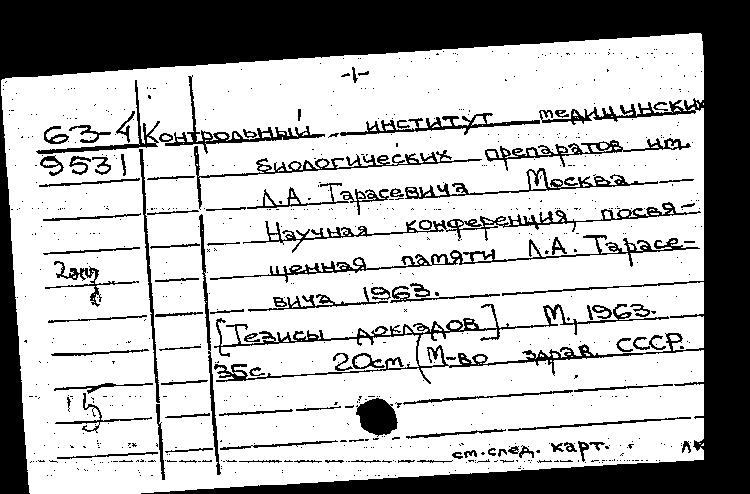 -1-
63-4 Контрольный институт медицинских
9531 биологических препаратов им.
Л.А. Тарасевича Москва.
Научная конференция, посвя-
щенная памяти Л.А. Тарасе-
2 экз
вича. 1963.
[Тезисы докладов]. М., 1963.
35с. 20см. (М-во здрав. СССР.
15
см. след. карт. ЛК